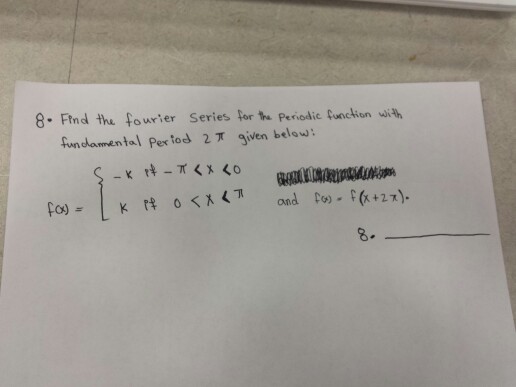 8. Find the fourier Series for the Periodic function with
fundamental Period 2π given below:
f(x) = { -k if -π < x < 0
k if 0 < x < π
and f(x) = f(x+2π).
8. ________